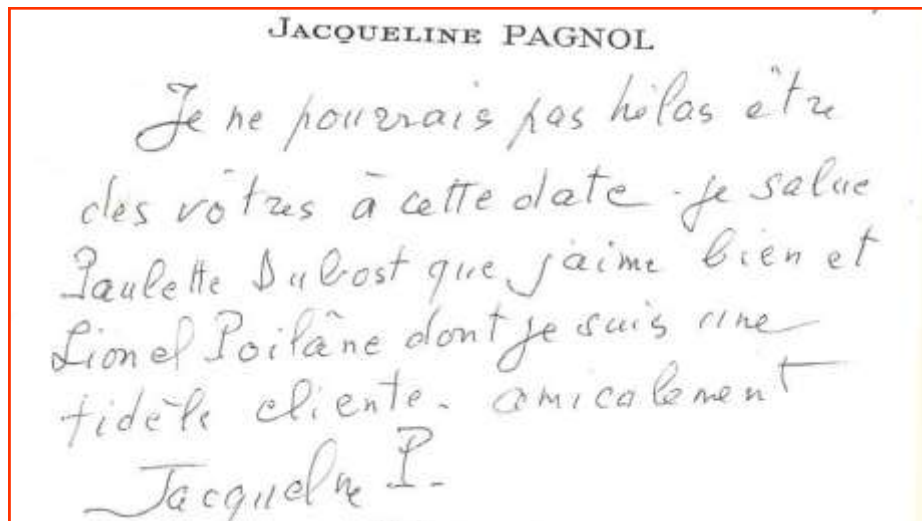 JACQUELINE PAGNOL
Je ne pourrais pas hélas être
des vôtres à cette date. je salue
Paulette Dubost que j'aime bien et
Lionel Poilâne dont je suis une
fidèle cliente. amicalement
Jacqueline P.